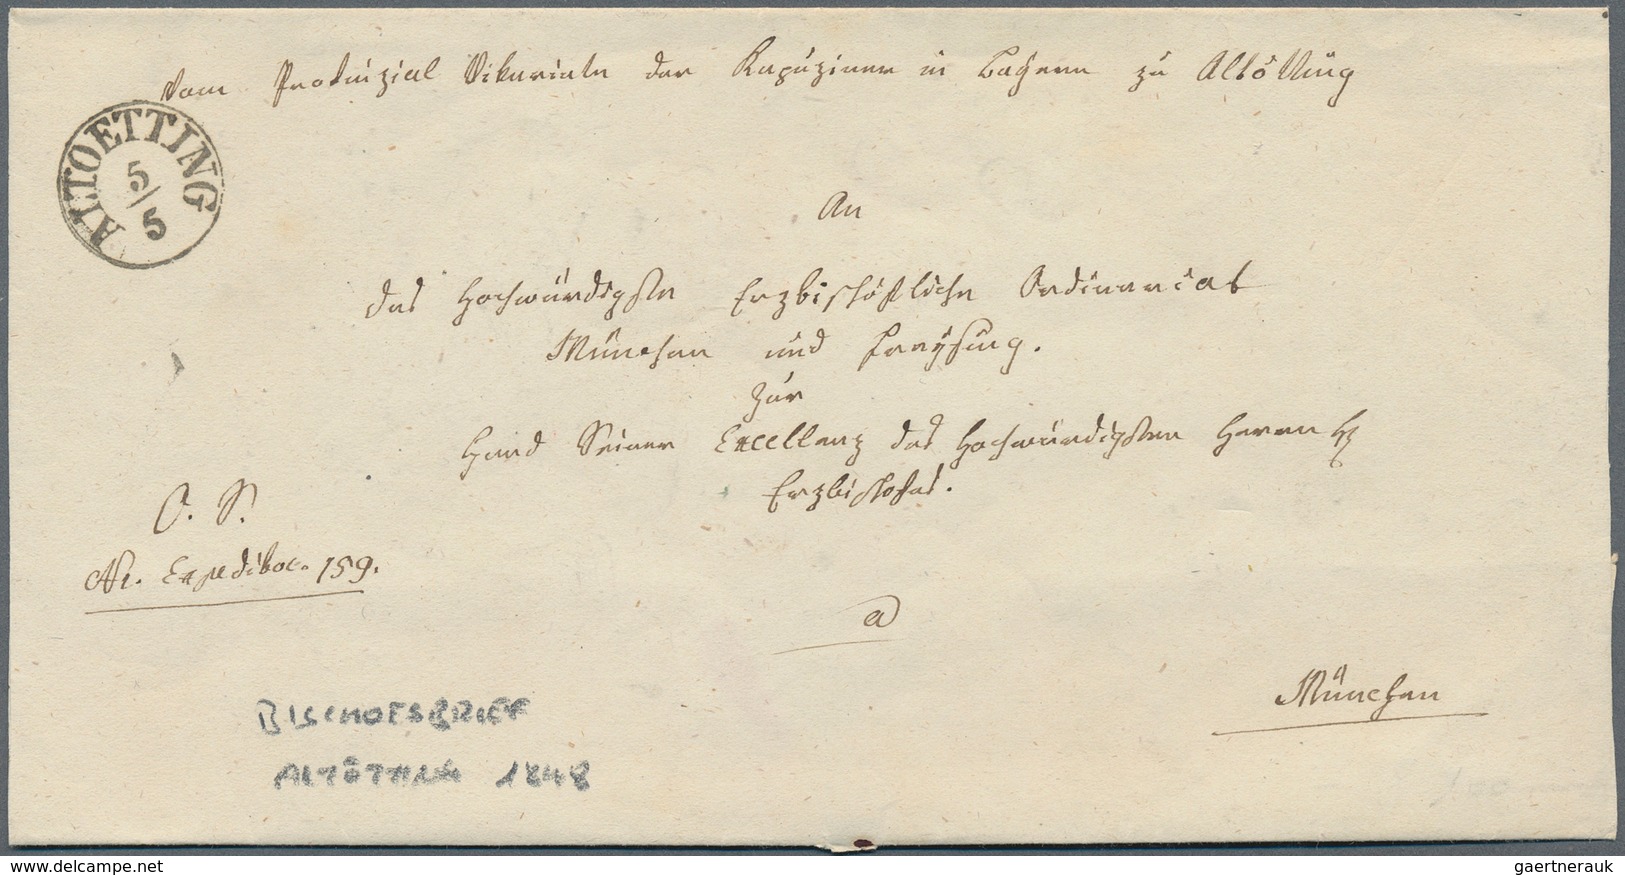 Vom Provinzial Vikariate der Kapuziner in Bayern zu Altötting
ALTOETTING
5/5
An
das hochwürdigste Erzbischöfliche Ordinariat
München und Freysing.
Zur
Hand Seiner Excellenz des hochwürdigsten Herrn H
Erzbischofes.
O. S.
Nr. Expeditor. 159.
a
München
BISCHOFSBRIEF
ALTÖTTING 1848
www.delcampe.net
gaertnerauk